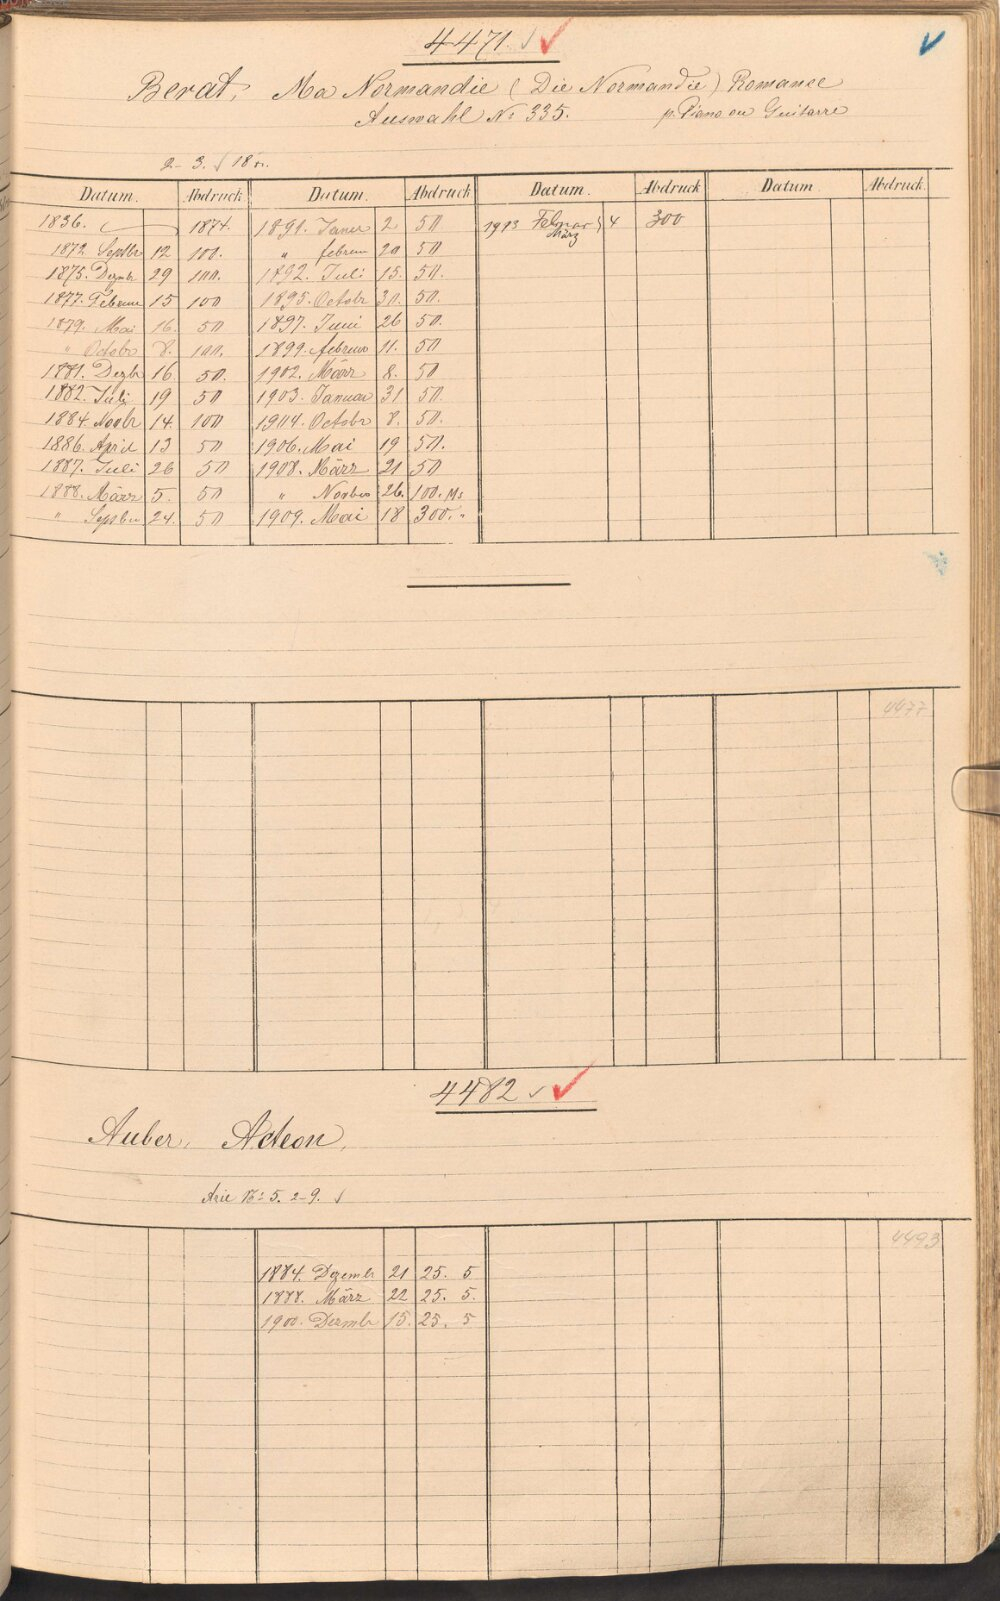 4471.
Berat, Ma Normandie (Die Normandie) Romance
Auswahl No 335. p. Piano ou Guitarre
2-3.
Datum. Abdruck Datum. Abdruck Datum. Abdruck Datum Abdruck.
1836. 1874. 1891. Januer 2 50 1913 Februar 4 300
März
1872. Septbr 12 100. " februer 20 50
1875. Dezmbr 29 100. 1892. Juli 15. 50.
1877. Februar 15 100 1895. Octobr 30. 50.
1879. Mai 16. 50 1897. Juni 26 50.
" Octobr 8. 100. 1899. februar 11. 50
1881. Dezbr 16 50. 1902. März 8. 50
1882. Juli 19 50 1903. Januar 31 50.
1884. Novbr 14. 100 1904. Octobr 8. 50.
1886. April 13 50 1906. Mai 19 50.
1887. Juli 26 50 1908. März 21 50
1888. März 5. 50 " Novber 26. 100. Ms
" Septber 24. 50 1909. Mai 18 300. "
4477
4482
Auber, Acteon,
Arie No 5. 2-9.
4493
1884. Dezembr 21 25. 5
1888. März 22 25. 5.
1900. Dezmbr 15. 25. 5